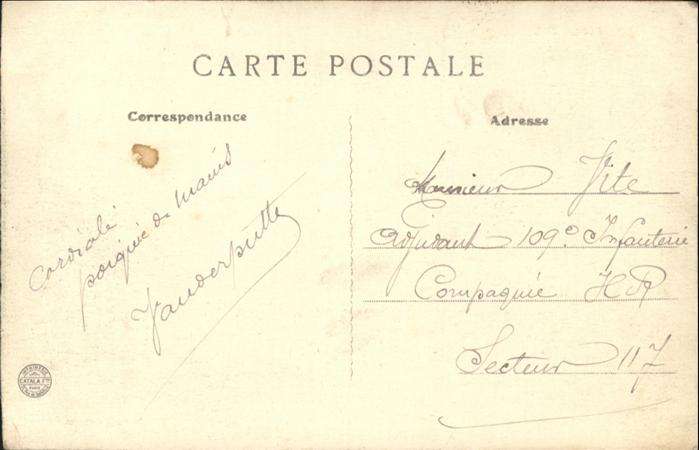 CARTE POSTALE
Correspondance
Adresse
Cordiale
poignée de mains
Vanderputte
Monsieur Vite
Adjudant 109e Infanterie
Compagnie H R
Secteur 117
CATALA Fres
PARIS